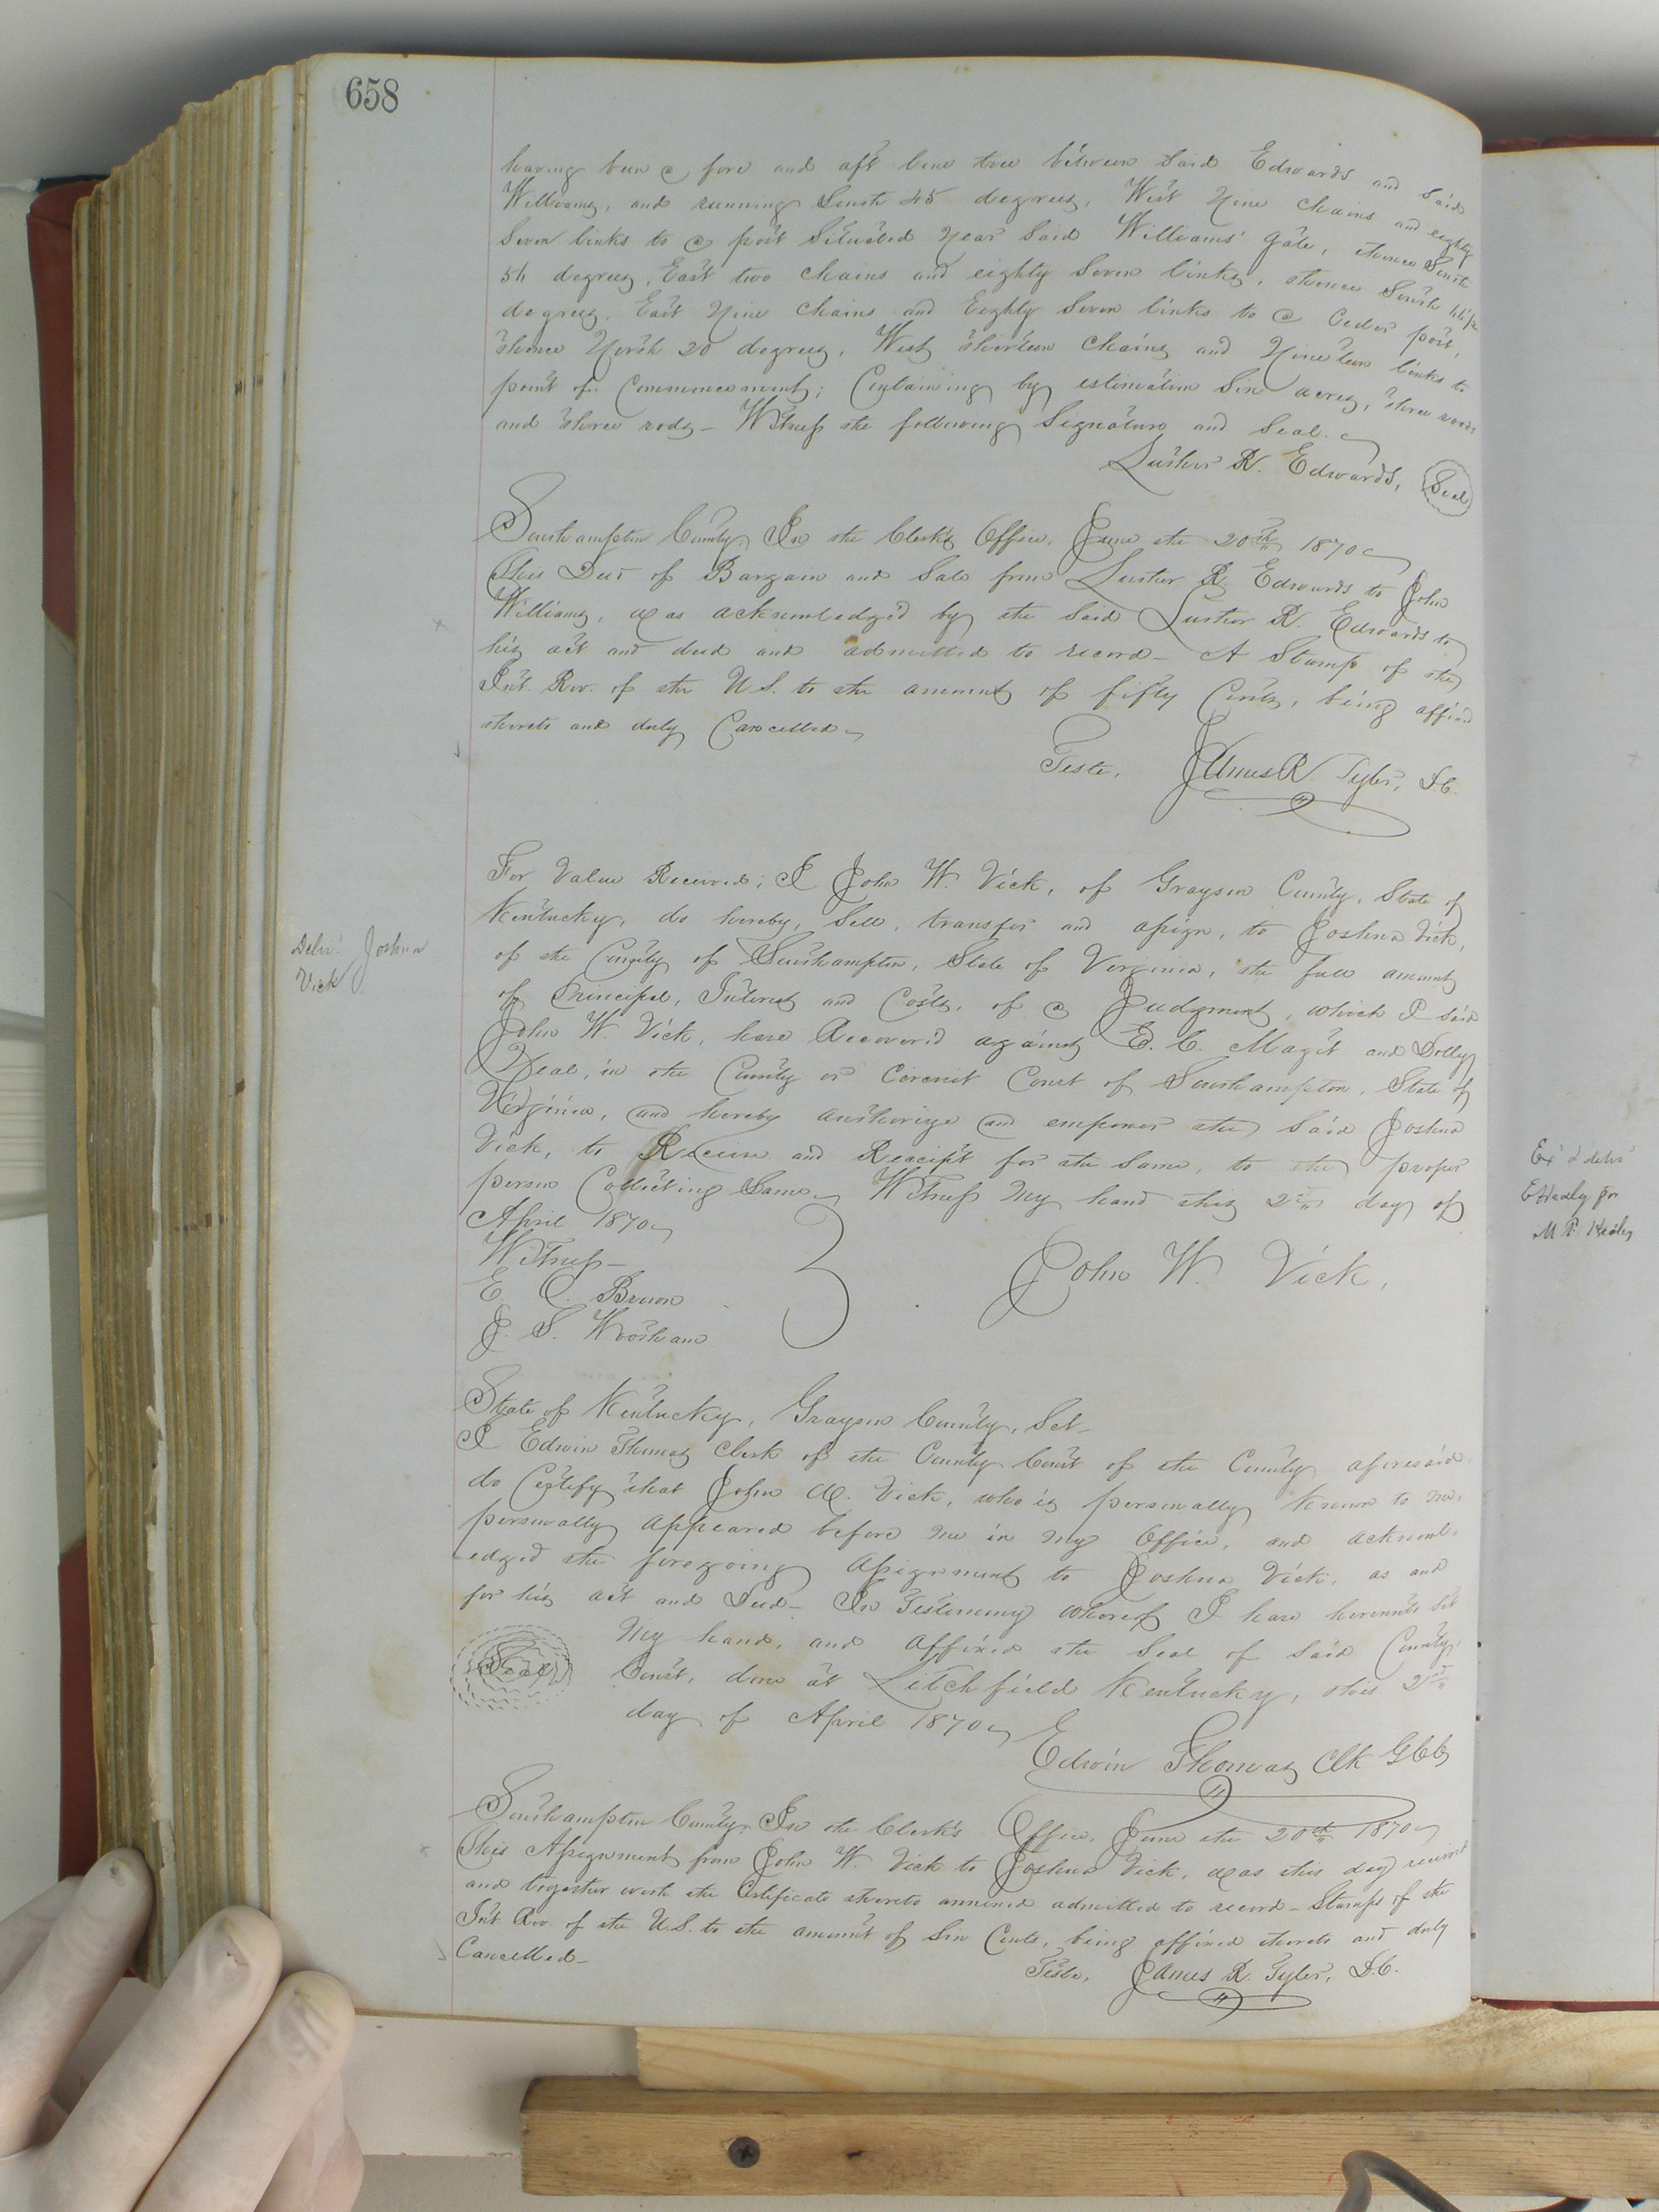 658
having been a fore and aft line tree between said Edwards and said
Williams, and running South 45 degrees, West Nine chains and eighty
Seven links to a post Situated Near Said Williams' gate, thence South
54 degrees, East two chains and eighty Seven links, thence South 44 1/2
degrees, East Nine chains and Eighty Seven links to a Ceder post,
thence North 20 degrees, West thirteen Chains and Nineteen links to
point of Commencement; Containing by estimation Six acres, three roods
and three rods — Witness the following Signature and Seal.
Luther R. Edwards, Seal
Southampton County, In the Clerk's Office, June the 20th 1870
This Deed of Bargain and Sale from Luther R. Edwards to John
Williams, was acknowledged by the Said Luther R. Edwards to
his act and deed and admitted to record — A Stamp of the
Int. Rev. of the U.S. to the amount of fifty Cents, being affixed
thereto and duly Cancelled
Teste, James R. Tyler, D.C.
For Value Received; I John W. Vick, of Grayson County, State of
Kentucky, do hereby, Sell, transfer and assign, to Joshua Vick,
Delivd Joshua
Vick
of the County of Southampton, State of Virginia, the full amount
of Principal, Interest and Costs, of a Judgment, which I said
John W. Vick, have Recovered against E. C. Magit and Dolly
Neal, in the County or Circuit Court of Southampton, State of
Virginia, and hereby authorize and empower the Said Joshua
Vick, to Receive and Reaceipt for the Same, to the proper
person Collecting Same. Witness My hand this 2nd day of
April 1870
Witness —
E. C. Brown
J. S. Wootham
John W. Vick,
State of Kentucky, Grayson County, Sct —
I Edwin Thomas Clerk of the County Court of the County aforesaid
do Certify that John W. Vick, who is personally known to me,
personally appeared before me in my Office, and acknowl-
edged the foregoing Assignment to Joshua Vick, as and
for his act and Deed — In Testimony whereof I have hereunto Set
My hand, and affixed the Seal of Said County
Seal
Court, done at Litchfield Kentucky, this 2nd
day of April 1870
Edwin Thomas Clk GCC
Southampton County, In the Clerk's Office, June the 20th 1870
This Assignment from John W. Vick to Joshua Vick, was this day received
and together with the Certificate thereto annexed admitted to record — Stamps of the
Int. Rev. of the U.S. to the amount of Six Cents, being affixed thereto and duly
Cancelled —
Teste, James R. Tyler, D.C.
Exd & delvd
E Healy for
M P. Healy